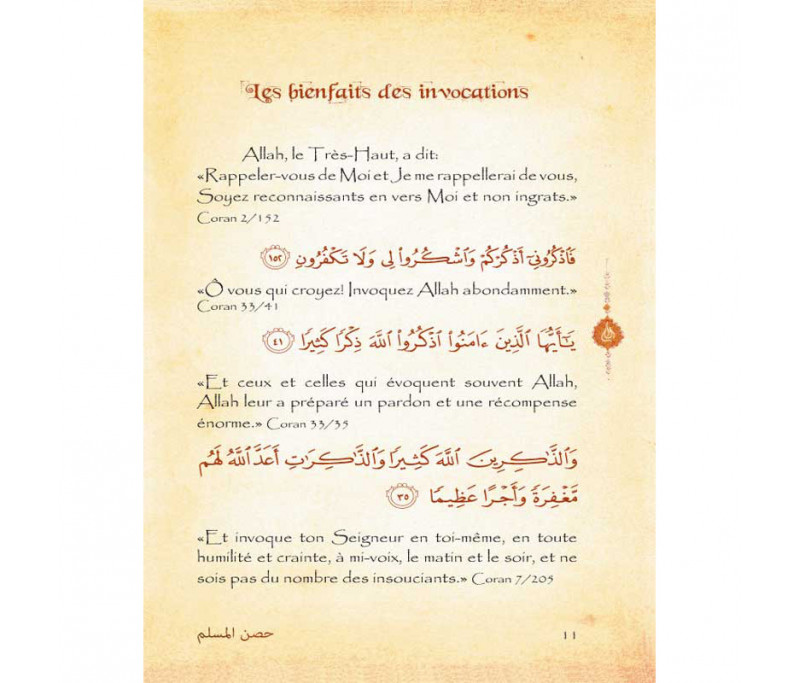 Les bienfaits des invocations
Allah, le Très-Haut, a dit:
«Rappeler-vous de Moi et Je me rappellerai de vous,
Soyez reconnaissants en vers Moi et non ingrats.»
Coran 2/152
فَاذْكُرُونِيٓ أَذْكُرْكُمْ وَاشْكُرُوا۟ لِى وَلَا تَكْفُرُونِ ١٥٢
«Ô vous qui croyez! Invoquez Allah abondamment.»
Coran 33/41
يَـٰٓأَيُّهَا الَّذِينَ ءَامَنُوا۟ اذْكُرُوا۟ اللَّهَ ذِكْرًا كَثِيرًا ٤١
«Et ceux et celles qui évoquent souvent Allah,
Allah leur a préparé un pardon et une récompense
énorme.» Coran 33/35
وَالذَّٰكِرِينَ اللَّهَ كَثِيرًا وَالذَّٰكِرَٰتِ أَعَدَّ اللَّهُ لَهُم
مَّغْفِرَةً وَأَجْرًا عَظِيمًا ٣٥
«Et invoque ton Seigneur en toi-même, en toute
humilité et crainte, à mi-voix, le matin et le soir, et ne
sois pas du nombre des insouciants.» Coran 7/205
حصن المسلم
11